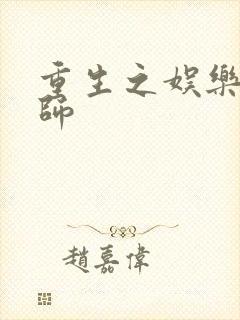 重生之娛樂
師
趙嘉偉